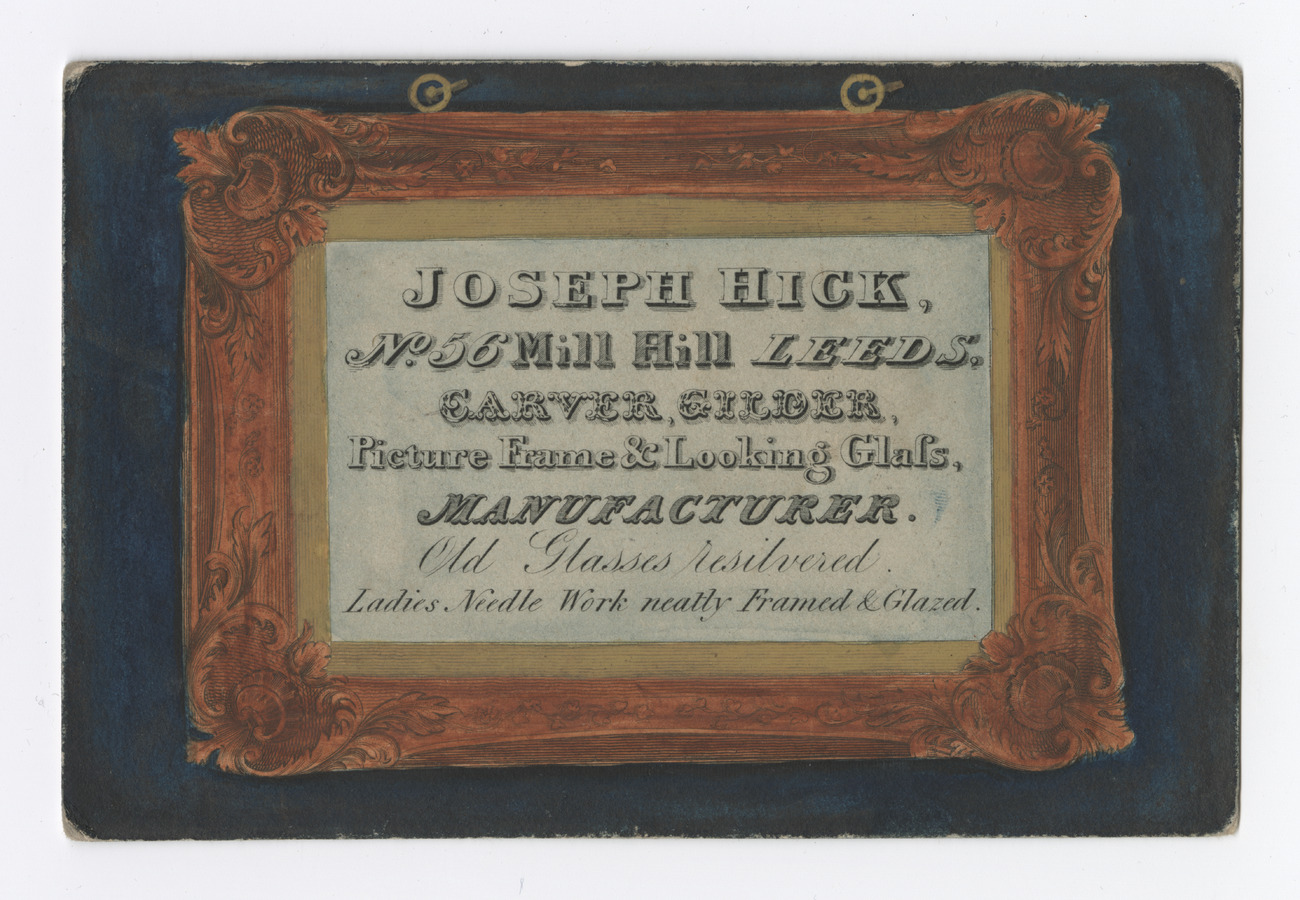 JOSEPH HICK,
No. 56 Mill Hill LEEDS.
CARVER, GILDER,
Picture Frame & Looking Glaſs,
MANUFACTURER.
Old Glasses resilvered.
Ladies Needle Work neatly Framed & Glazed.